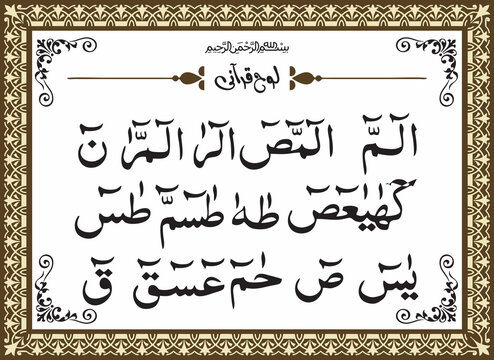 بِسْمِ اللهِ الرَّحْمٰنِ الرَّحِيْمِ
لوح قرآنی
الٓمّٓ الٓمّٓصٓ الٓرٰ الٓمّٓرٰ نٓ
كٓهٰيٰعٓصٓ طٰهٰ طٰسٓمّٓ طٰسٓ
يٰسٓ صٓ حٰمٓ عٓسٓقٓ قٓ